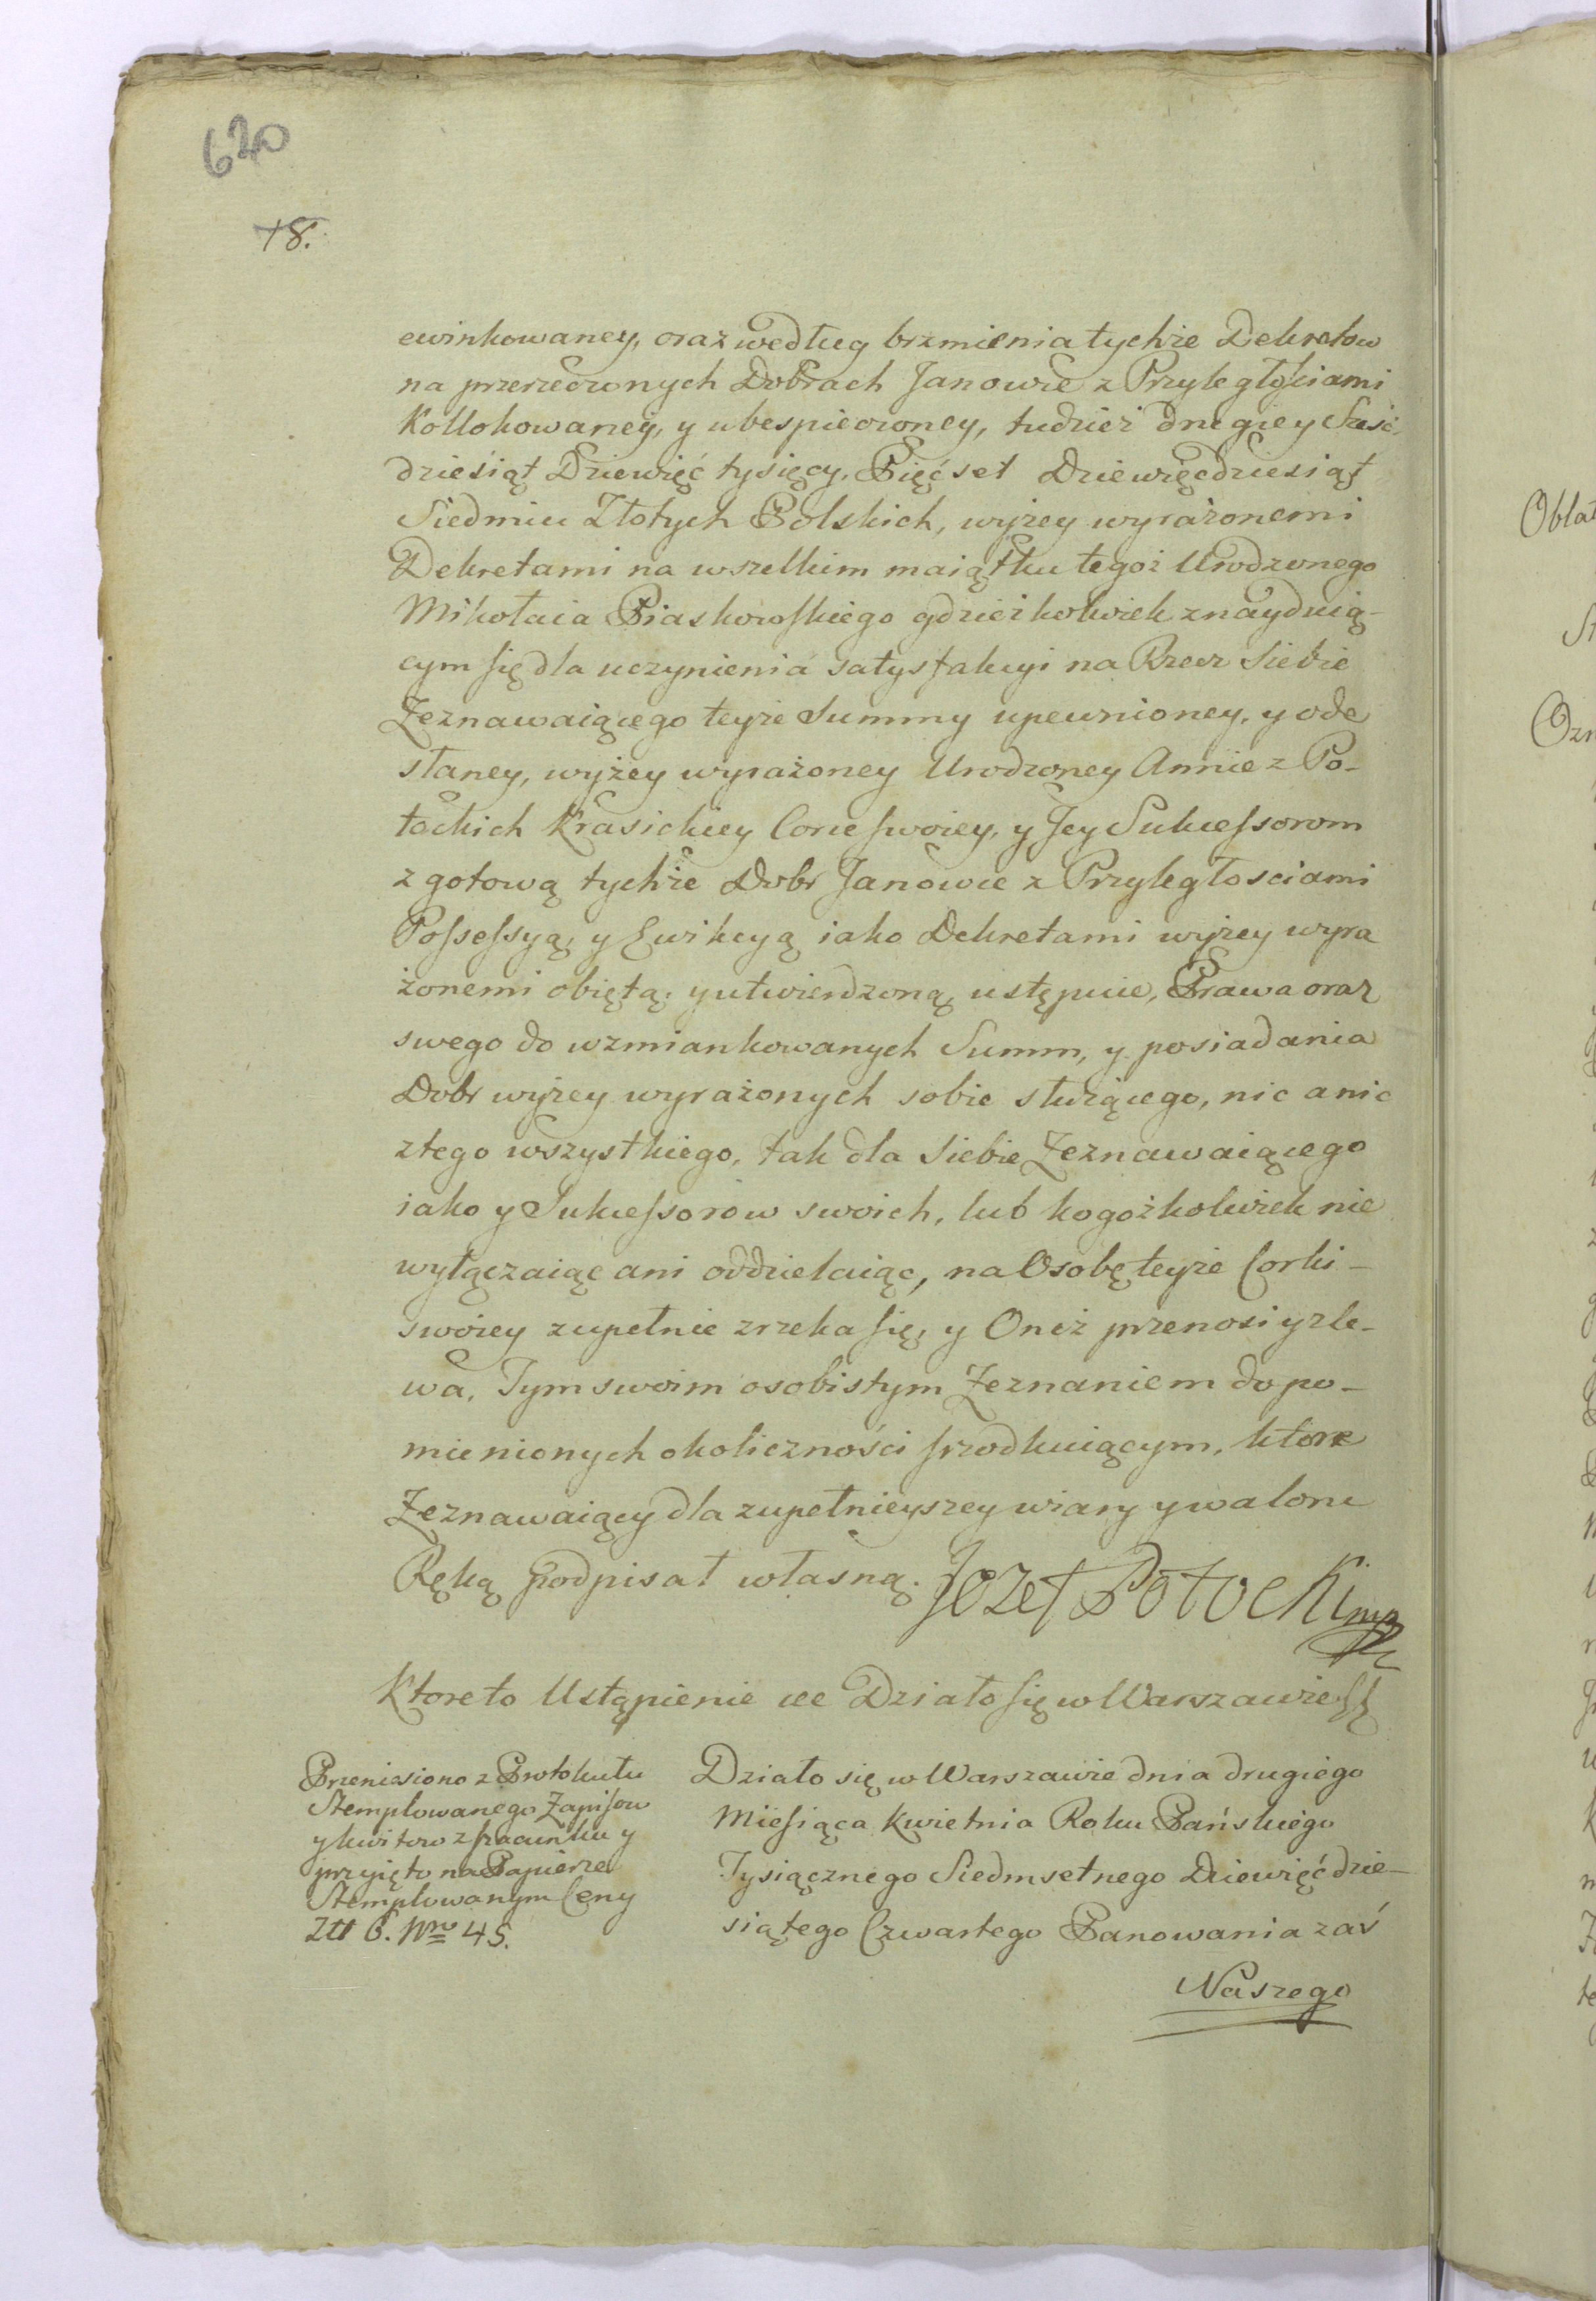 620
78.
ewinkowaney, oraz według brzmienia tychże Dekretow
na przerzeczonych Dobrach Janowie z Przyległościami
Kollokowaney, y ubespieczoney, tudzież drugiey Sześć-
dziesiąt Dziewięć tysięcy, Pięćset Dziewięćdziesiąt
Siedmiu Złotych Polskich, wyżey wyrażonemi
Dekretami na wszelkim maiątku tegoż Urodzonego
Mikołaia Piaskowskiego gdzieżkolwiek znayduią-
cym się dla uczynienia satysfakcyi na Rzecz Siebie
Zeznawaiącego teyże Summy upewnioney, y ode
słaney, wyżey wyrażoney Urodzoney Annie z Po-
tockich Krasickiey Corce swoiey, y Jey Sukcessorom
z gotową tychże Dobr Janowce z Przyległosciami
Possessyą, y Ewikcyą iako Dekretami wyżey wyra
żonemi obiętą, y utwierdzoną, ustępuie, Prawa oraz
swego do wzmiankowanych Summ, y posiadania
Dobr wyżey wyrażonych sobie służącego, nic a nic
z tego wszystkiego, tak dla Siebie Zeznawaiącego
iako y Sukcessorow swoich, lub kogożkolwiek nie
wyłączaiąc ani oddzielaiąc, na Osobę teyże Corki-
swoiey zupełnie zrzeka się, y Oneż przenosi y zle-
wa, Tym swoim osobistym Zeznaniem do po-
mienionych okoliczności srzodkuiącym, ktore
Zeznawaiący dla zupełnieyszey wiary y waloru
Ręką podpisał własną. Jozef Potocki mp
Ktore to Ustąpienie etc Działo się w Warszawie
Przeniesiono z Protokułu
Stemplowanego Zapisow
y kwitow z szacunku y
przyięto na Papierze
Stemplowanym Ceny
Ztt 6. Nro 45.
Działo się w Warszawie dnia drugiego
Miesiąca Kwietnia Roku Pańskiego
Tysiącznego Siedmsetnego Dziewięćdzie-
siątego Czwartego Panowania zaś
Naszego